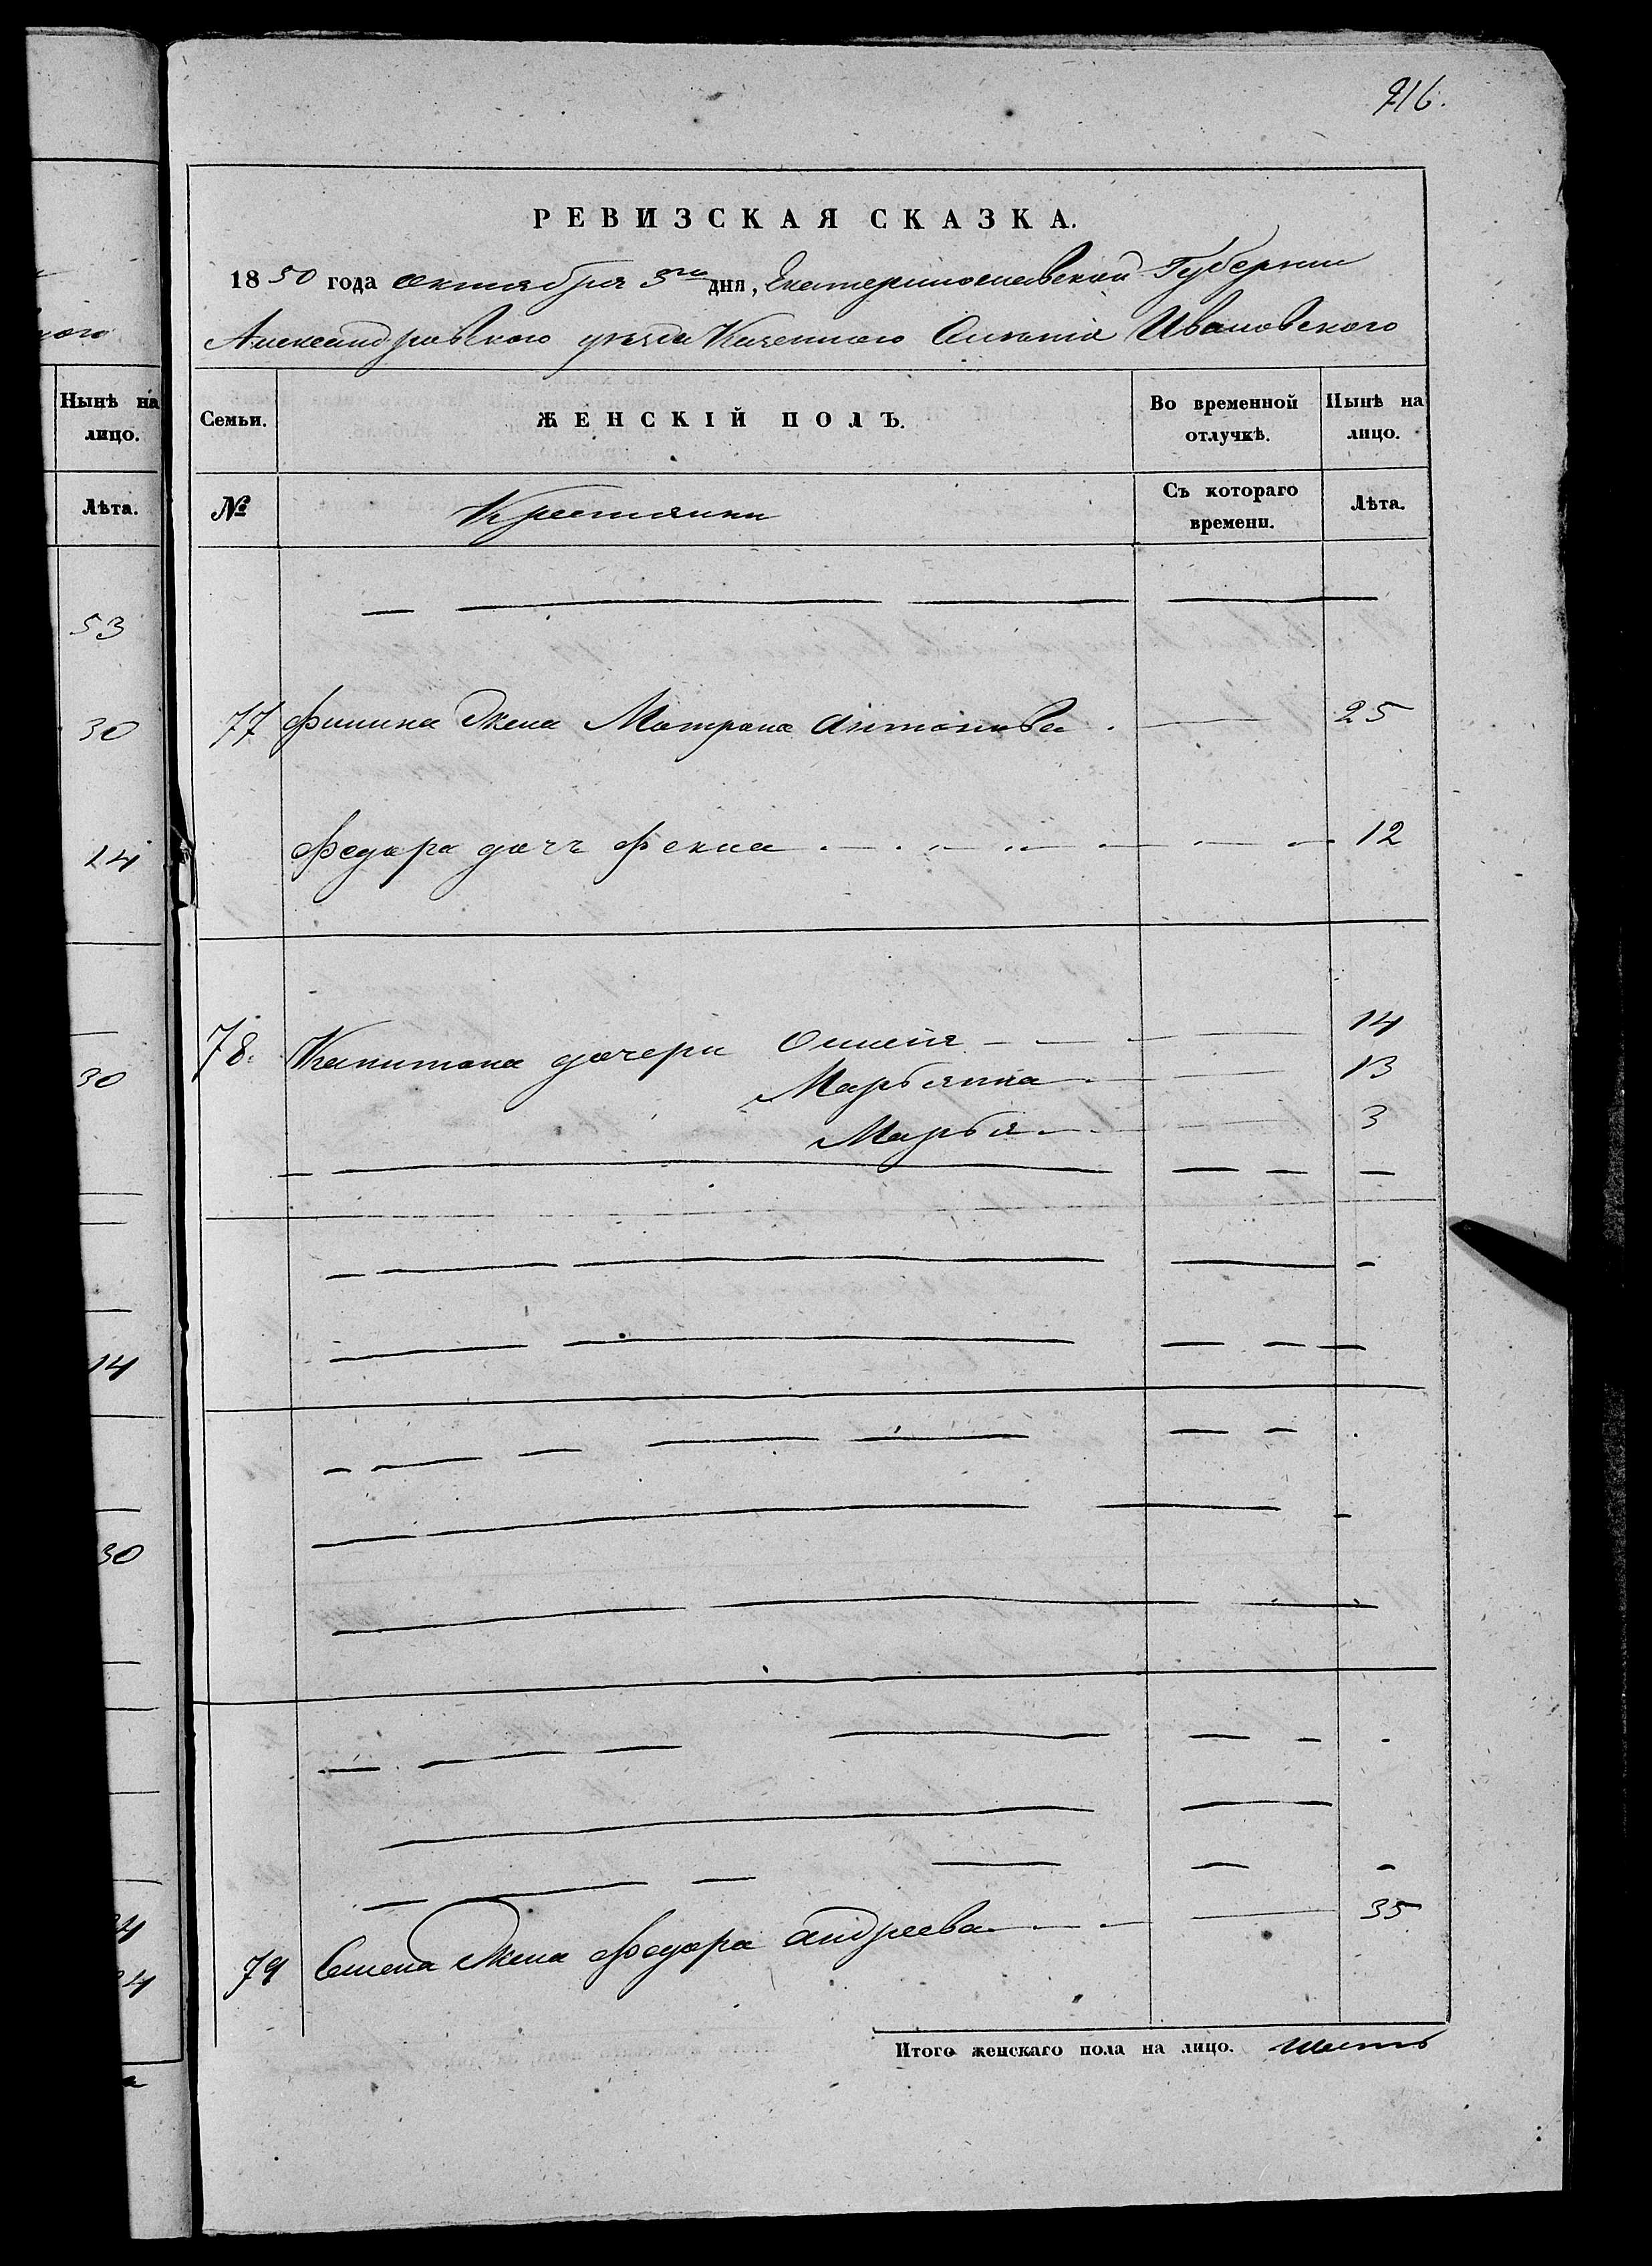 216.
РЕВИЗСКАЯ СКАЗКА.
1850 года октября 3го дня, Екатеринославской Губернии
Александровского уезда Казенного Селения Ивановского
Семьи. ЖЕНСКІЙ ПОЛЪ. Во временной отлучкѣ. Нынѣ на лицо.
№ Крестьянки Съ котораго времени. Лѣта.
77 Филипа жена Матрона Антонова 25
Федора дочь Фекла 12
78. Капитона дочери 14
Марьянна 13
Марья 3
79 Семена жена Федора Андреева 35
Итого женскаго пола на лицо. шесть
ного
Нынѣ на
лицо.
Лѣта.
53
30
14
30
14
30